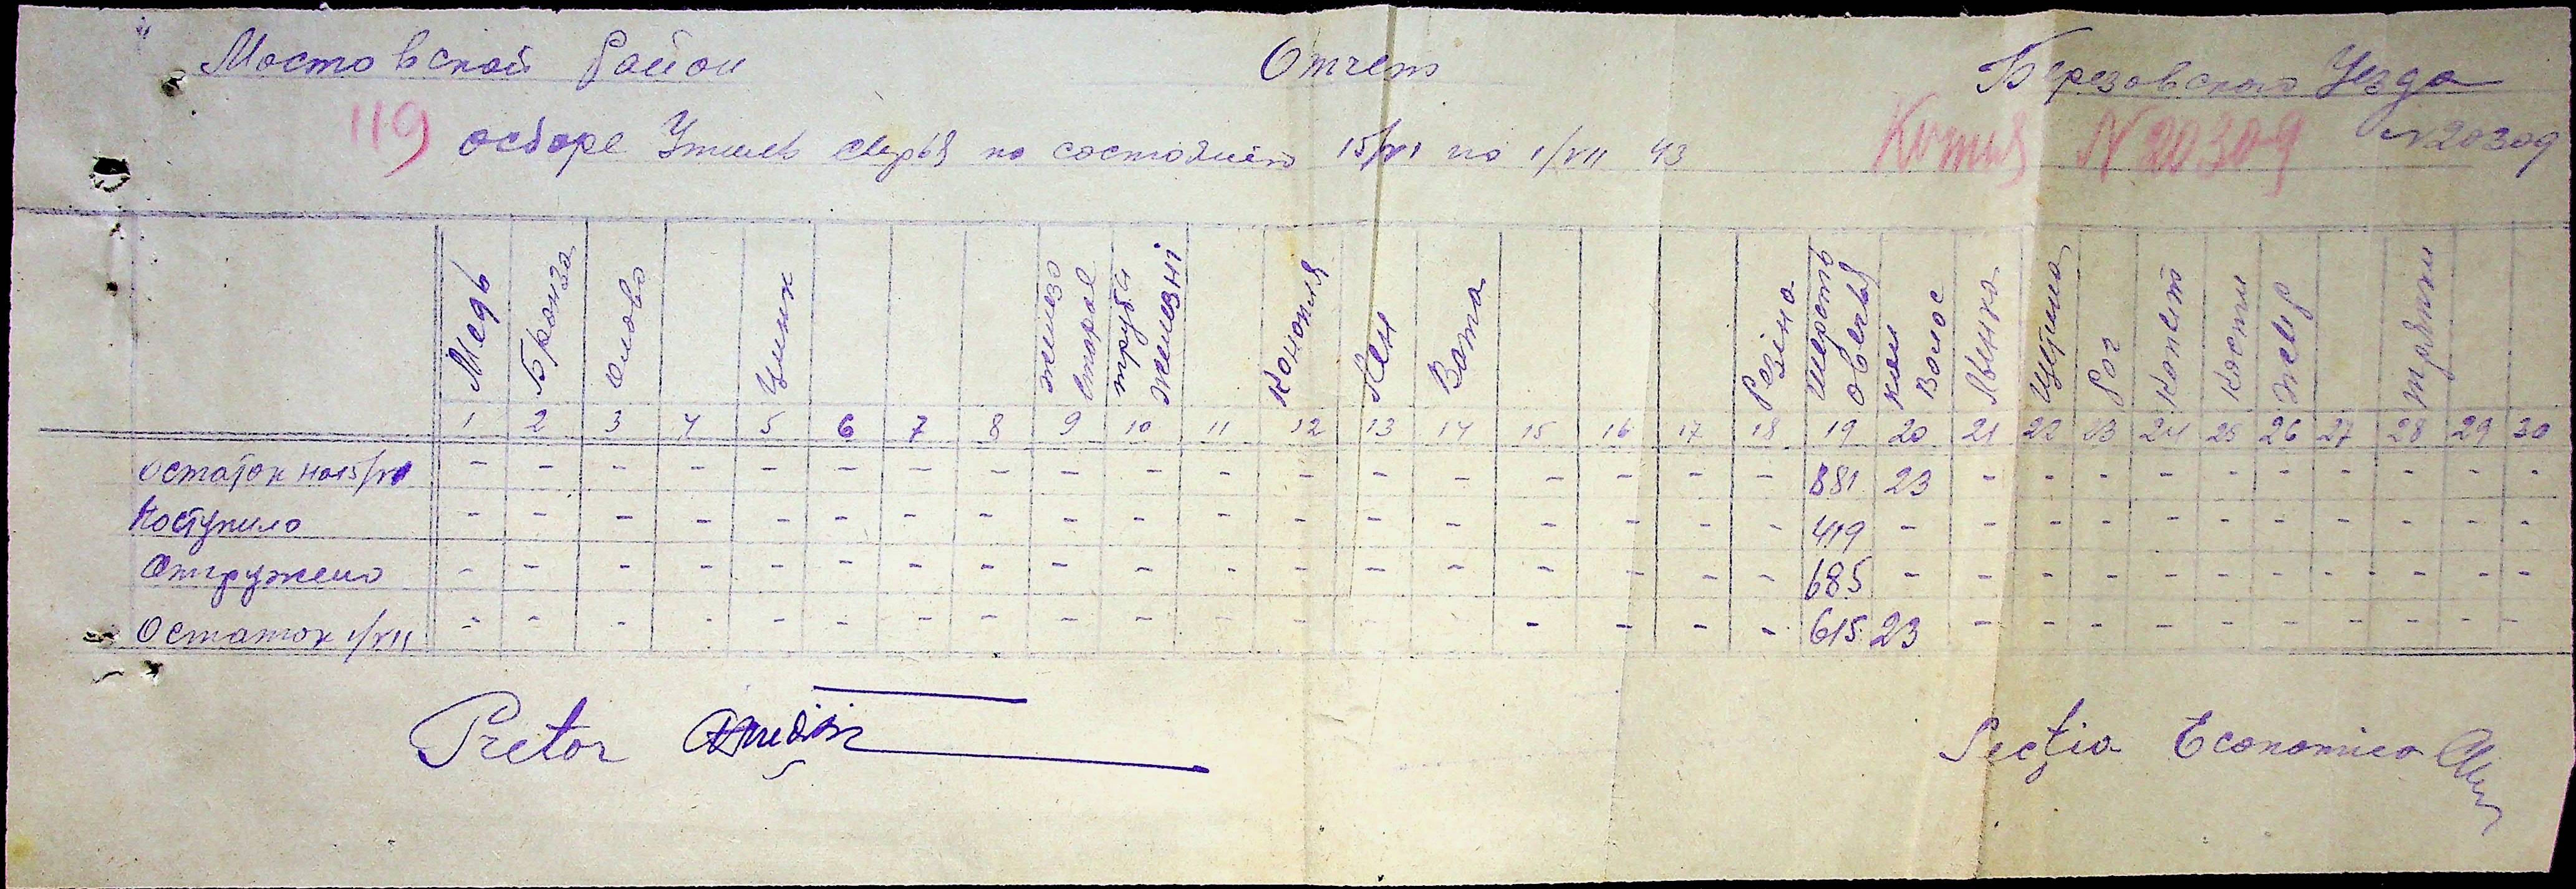 Мостовской Район Отчет Березовского Уезда
119 о сборе Утиль сырья по состоянию 15/VI по 1/VII 43 Копия N 20309 N 20309
Медь Бронза Олово Цинк железо старое трубы железні Конопля Лен Вата Резіна Шерсть овечья Кон Волос Лынка Щетина Рог Копыт Кости Жир тряпки
1 2 3 4 5 6 7 8 9 10 11 12 13 14 15 16 17 18 19 20 21 22 23 24 25 26 27 28 29 30
Остаток на 15/VI - - - - - - - - - - - - - - - - - - 881 23 - - - - - - - - - -
Поступило - - - - - - - - - - - - - - - - - - 419 - - - - - - - - - - -
Отгружено - - - - - - - - - - - - - - - - - - 685 - - - - - - - - - - -
Остаток 1/VII - - - - - - - - - - - - - - - - - - 615 23 - - - - - - - - - -
Pretor Secţia Economica